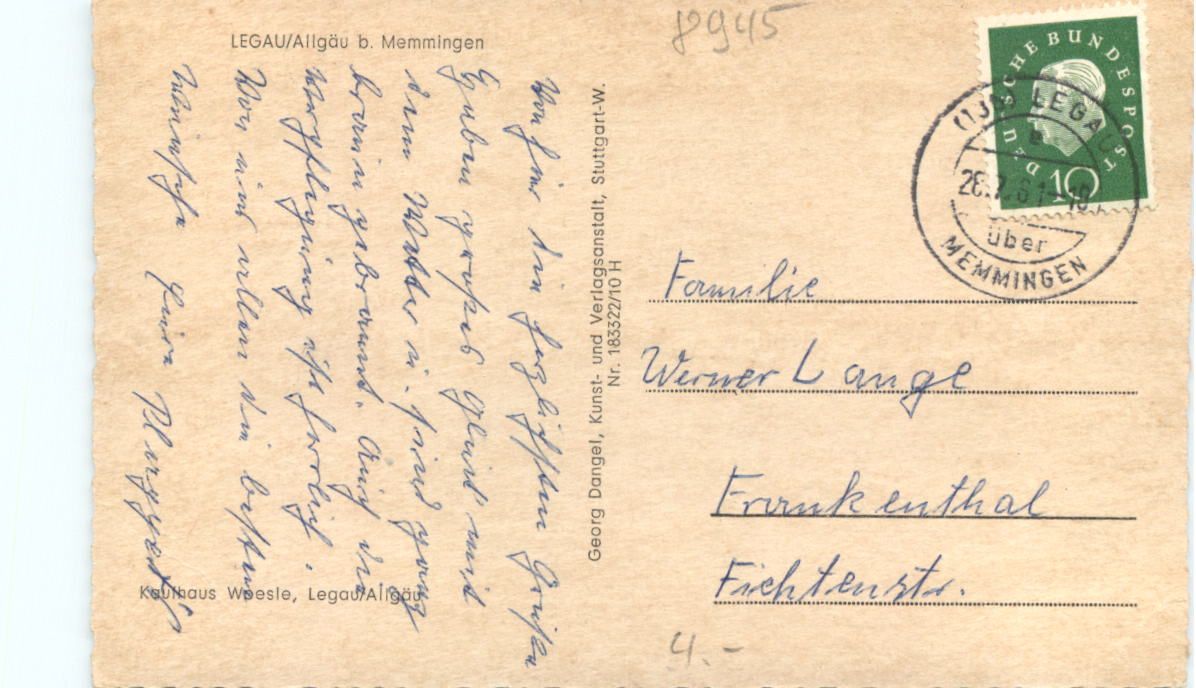 LEGAU/Allgäu b. Memmingen
8945
Von hier die herzlichsten Grüße
Haben großes Glück mit
dem Wetter u. sind ganz
braun gebrannt. Auch die
Verpflegung ist herrlich.
Von uns allen die besten
Wünsche Eure
Kaufhaus Weesle, Legau/Allgäu
Georg Dangel, Kunst- und Verlagsanstalt, Stuttgart-W.
Nr. 183322/10 H
DEUTSCHE BUNDESPOST
10
(13b) LEGAU
über
MEMMINGEN
Familie
Werner Lange
Frankenthal
Fichtenstr.
4.-